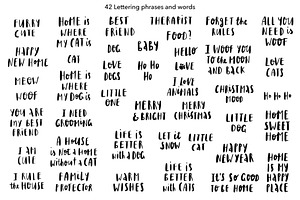 42 Lettering phrases and words
FURRY
CUTE
HAPPY
NEW HOME
MEOW
WOOF
YOU ARE
MY BEST
FRIEND
I AM
CUTE
I RULE
THE HOUSE
HOME IS
WHERE
MY CAT IS
CAT
HOME IS
WHERE
MY DOG IS
I NEED
GROOMING
A HOUSE
IS NOT A HOME
WITHOUT A CAT
FAMILY
PROTECTOR
BEST
FRIEND
DOG
LOVE
DOGS
LITTLE
ONE
BABY
HO HO
HO
MERRY
& BRIGHT
LIFE IS
BETTER
WITH A DOG
WARM
WISHES
THERAPIST
FOOD?
HELLO
LOVE
I LOVE
ANIMALS
MERRY
CHRISTMAS
LET IT
SNOW
LITTLE
CAT
LIFE IS
BETTER
WITH CATS
FORGET THE
RULES
I WOOF YOU
TO THE MOON
AND BACK
CHRISTMAS
MOOD
LITTLE
DOG
HAPPY
NEW YEAR
IT'S SO GOOD
TO BE HOME
ALL YOU
NEED IS
WOOF
LOVE
CATS
HO HO HO
HOME
SWEET
HOME
HOME
IS MY
HAPPY
PLACE